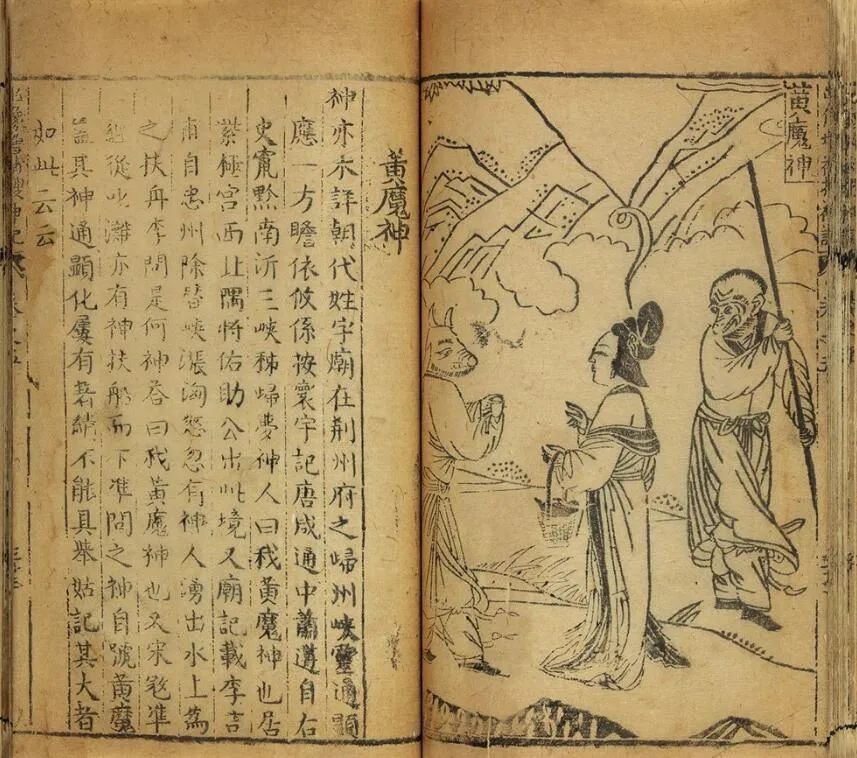 黃魔神
黃魔神
神亦不詳朝代姓字廟在荆州府之歸州峽靈通顯
應一方瞻依攸係按寰宇記唐咸通中蕭遘自右
史竄黔南泝三峽秭歸夢神人曰我黃魔神也居
紫極宮西北隅將佑助公出此境又廟記載李吉
甫自忠州除替峽漲洶怒忽有神人湧出水上為
之扶舟李問是何神答曰我黃魔神也又宋寇準
經從叱灘亦有神扶船而下準問之神自號黃魔
蓋其神通顯化屢有著績不能具舉姑記其大者
如此云云
搜神記